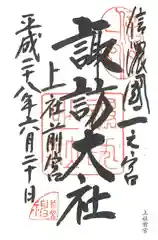 信濃國一之宮
諏訪大社
上社前宮
平成二十八年六月二十日
上社前宮